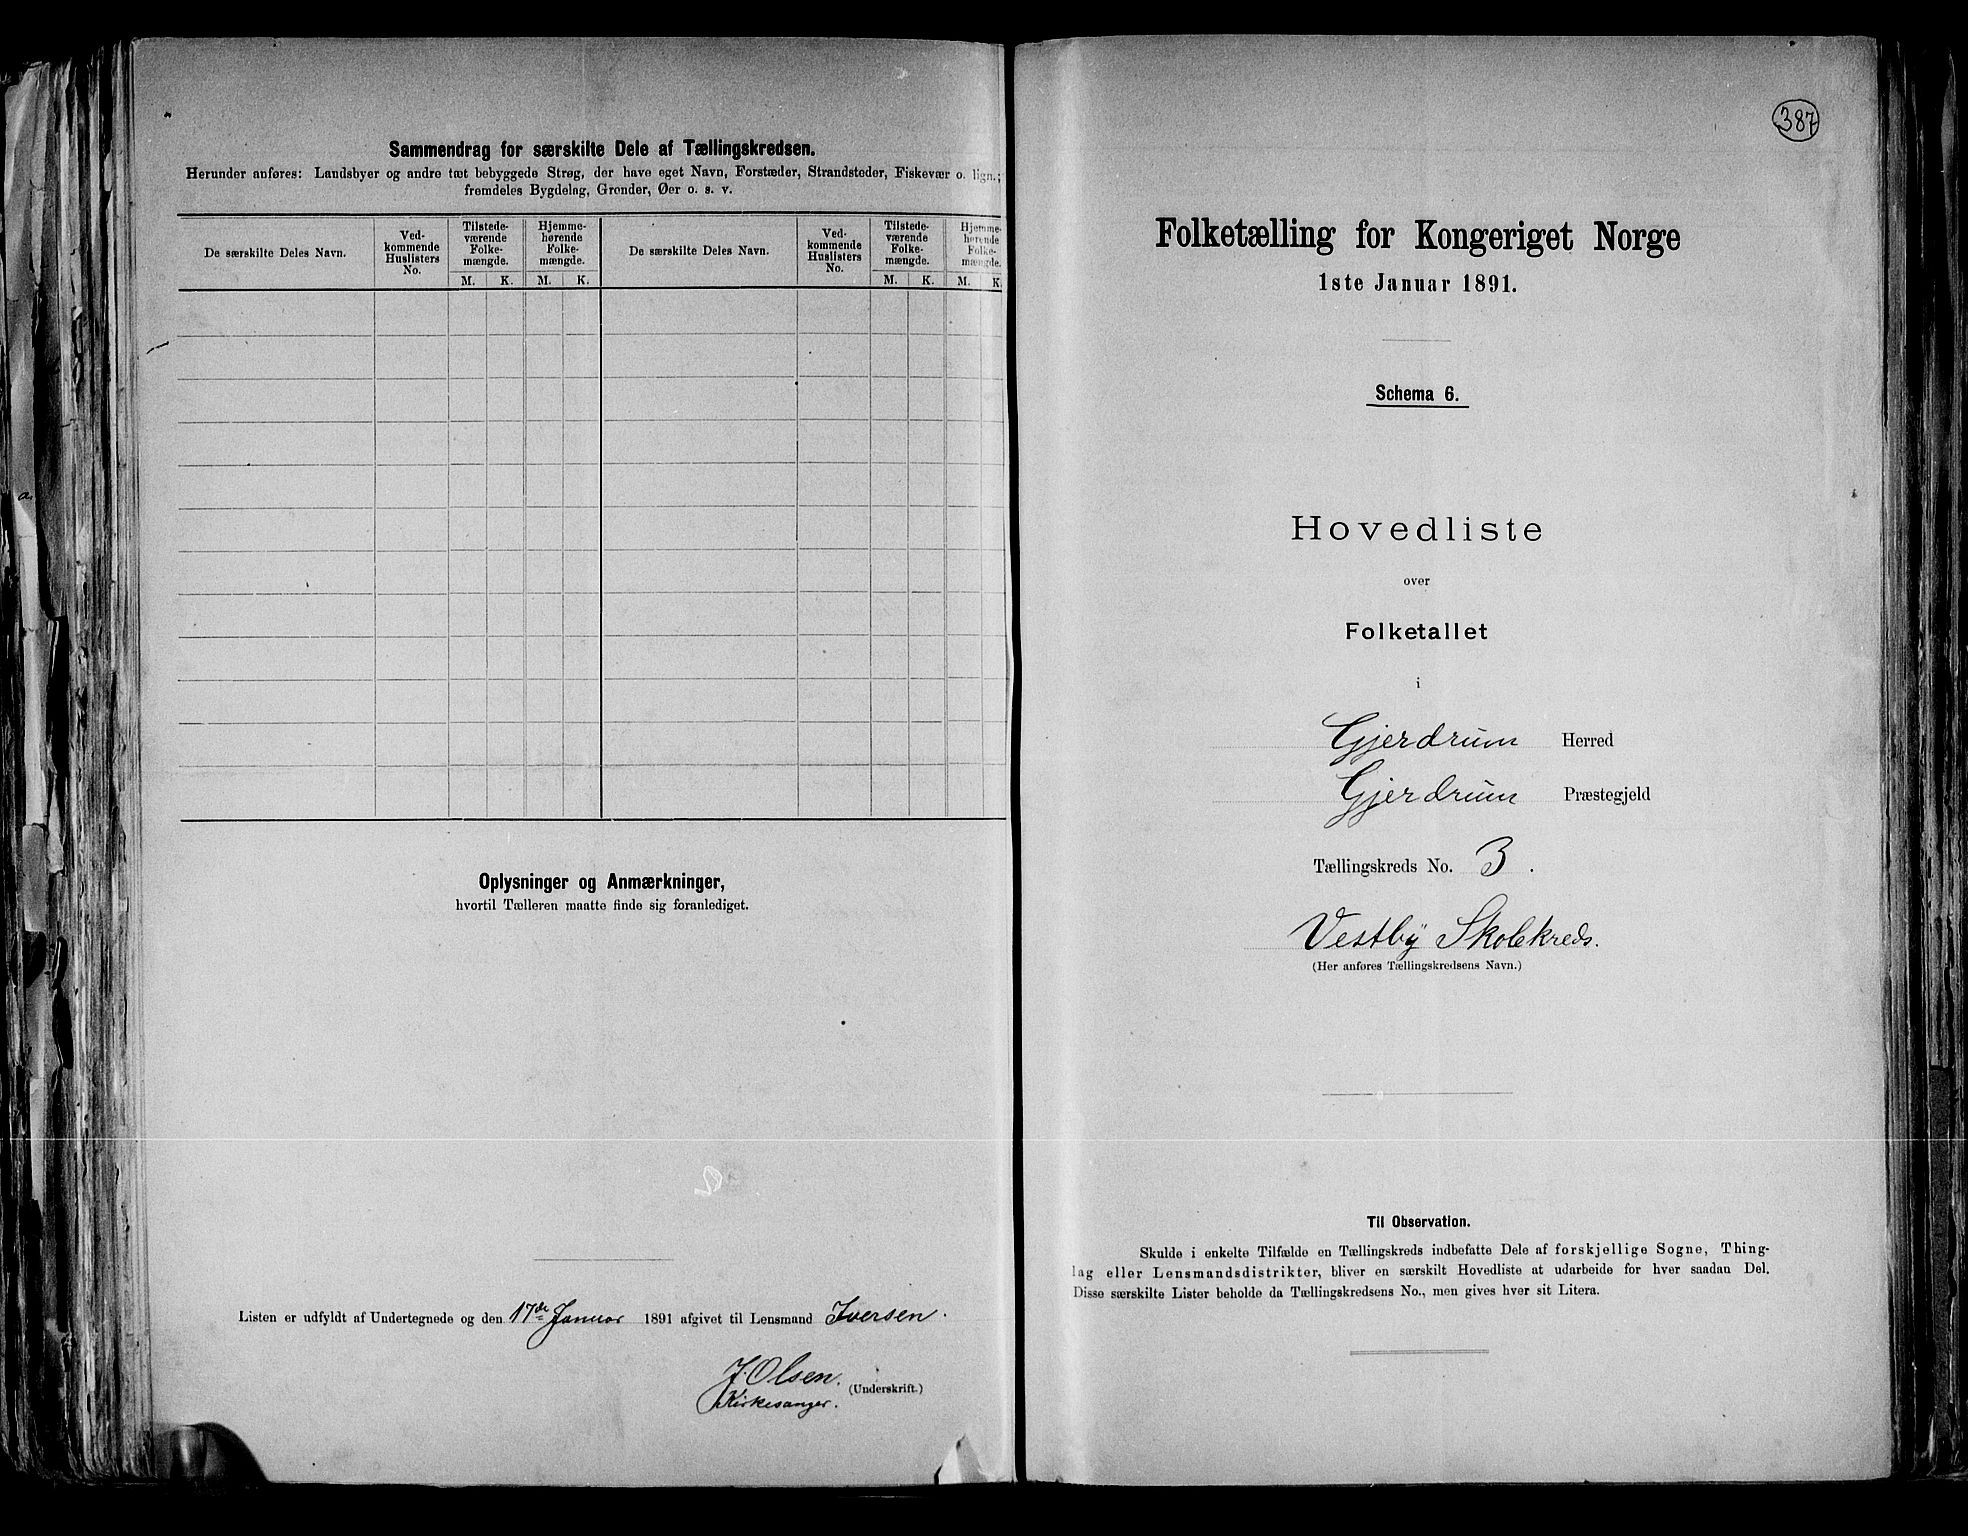 Sammendrag for særskilte Dele af Tællingskredsen.
Herunder anføres: Landsbyer og andre tæt bebyggede Strøg, der have eget Navn, Forstæder, Strandsteder, Fiskevær o. lign.;
fremdeles Bygdelag, Grender, Øer o. s. v.
De særskilte Deles Navn.
Ved-
kommende
Huslisters
No.
Tilstede-
værende
Folke-
mængde.
Hjemme-
hørende
Folke-
mængde.
M. K. M. K.
De særskilte Deles Navn.
Ved-
kommende
Huslisters
No.
Tilstede-
værende
Folke-
mængde.
Hjemme-
hørende
Folke-
mængde.
M. K. M. K.
Oplysninger og Anmærkninger,
hvortil Tælleren maatte finde sig foranlediget.
Listen er udfyldt af Undertegnede og den 17de Januar 1891 afgivet til Lensmand Iversen.
J. Olsen.
(Underskrift.)
Kirkesanger.
387
Folketælling for Kongeriget Norge
1ste Januar 1891.
Schema 6.
Hovedliste
over
Folketallet
i
Gjerdrum Herred
Gjerdrum Præstegjeld
Tællingskreds No. 3.
Vestby Skolekreds.
(Her anføres Tællingskredsens Navn.)
Til Observation.
Skulde i enkelte Tilfælde en Tællingskreds indbefatte Dele af forskjellige Sogne, Thing-
lag eller Lensmandsdistrikter, bliver en særskilt Hovedliste at udarbeide for hver saadan Del.
Disse særskilte Lister beholde da Tællingskredsens No., men gives hver sit Litera.